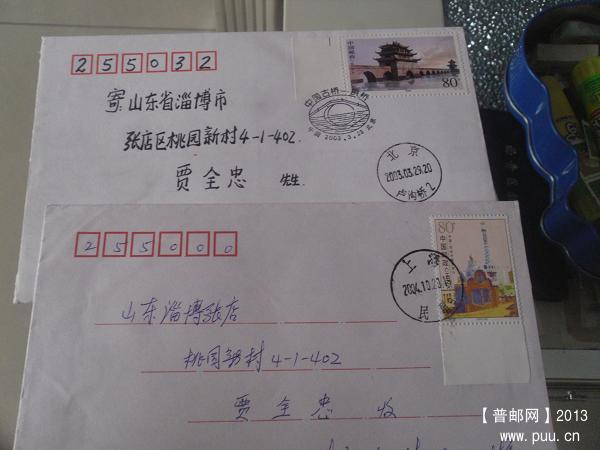 255032
寄:山东省淄博市
张店区桃园新村4-1-402.
贾全忠 先生
中国邮政
80分
中国古桥—拱桥
中国 2003.3.29 北京
北京
2003.03.29.20
卢沟桥2
255000
山东淄博张店
桃园新村4-1-402
贾全忠 收
80分
中国邮政
上海
2004.10.23
民
【普邮网】2013
www.puu.cn